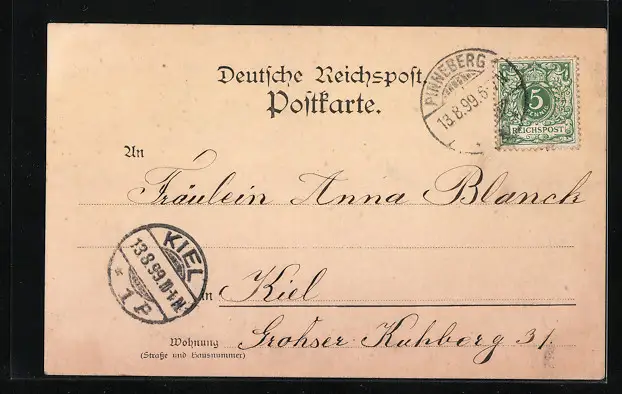 Deutsche Reichspost.
Postkarte.
PINNEBERG
13.8.99.6
5
PFENNIG
REICHSPOST
An
Fräulein Anna Blanck
KIEL
13.8.99.
1 P
in Kiel
Wohnung Grohser Kuhberg 31.
(Straße und Hausnummer)